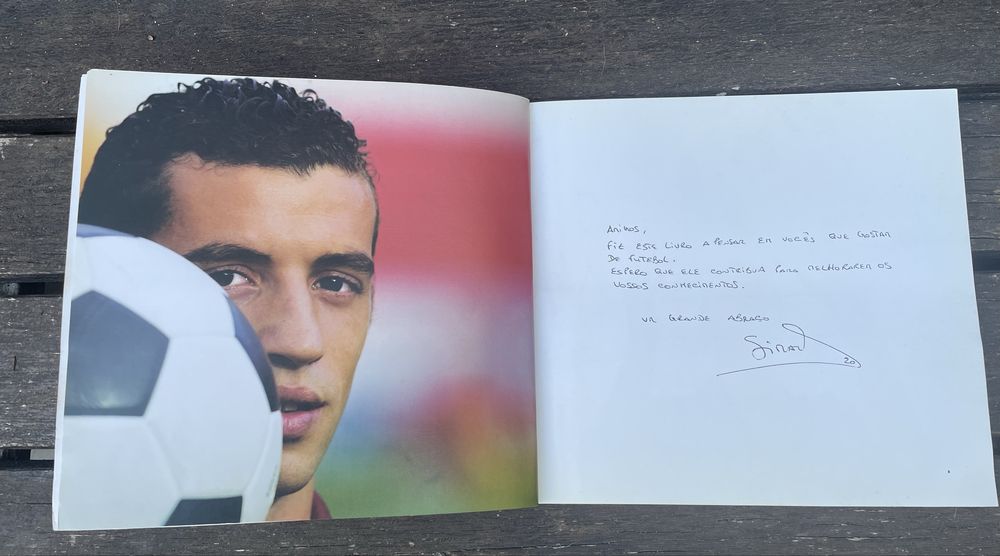 AMIGOS,
FIZ ESTE LIVRO A PENSAR EM VOCÊS QUE GOSTAM
DE FUTEBOL.
ESPERO QUE ELE CONTRIBUA PARA MELHORAREM OS
VOSSOS CONHECIMENTOS.
UM GRANDE ABRAÇO
Simão
20